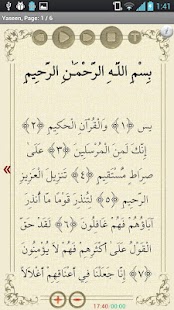 1:41
Yaseen, Page: 1 / 6
بِسْمِ اللَّهِ الرَّحْمَـٰنِ الرَّحِيمِ
يس ﴿١﴾ وَالْقُرْآنِ الْحَكِيمِ ﴿٢﴾
إِنَّكَ لَمِنَ الْمُرْسَلِينَ ﴿٣﴾ عَلَىٰ
صِرَاطٍ مُّسْتَقِيمٍ ﴿٤﴾ تَنزِيلَ الْعَزِيزِ
الرَّحِيمِ ﴿٥﴾ لِتُنذِرَ قَوْمًا مَّا أُنذِرَ
آبَاؤُهُمْ فَهُمْ غَافِلُونَ ﴿٦﴾ لَقَدْ حَقَّ
الْقَوْلُ عَلَىٰ أَكْثَرِهِمْ فَهُمْ لَا يُؤْمِنُونَ
﴿٧﴾ إِنَّا جَعَلْنَا فِي أَعْنَاقِهِمْ أَغْلَالًا
«
17:40 00:00